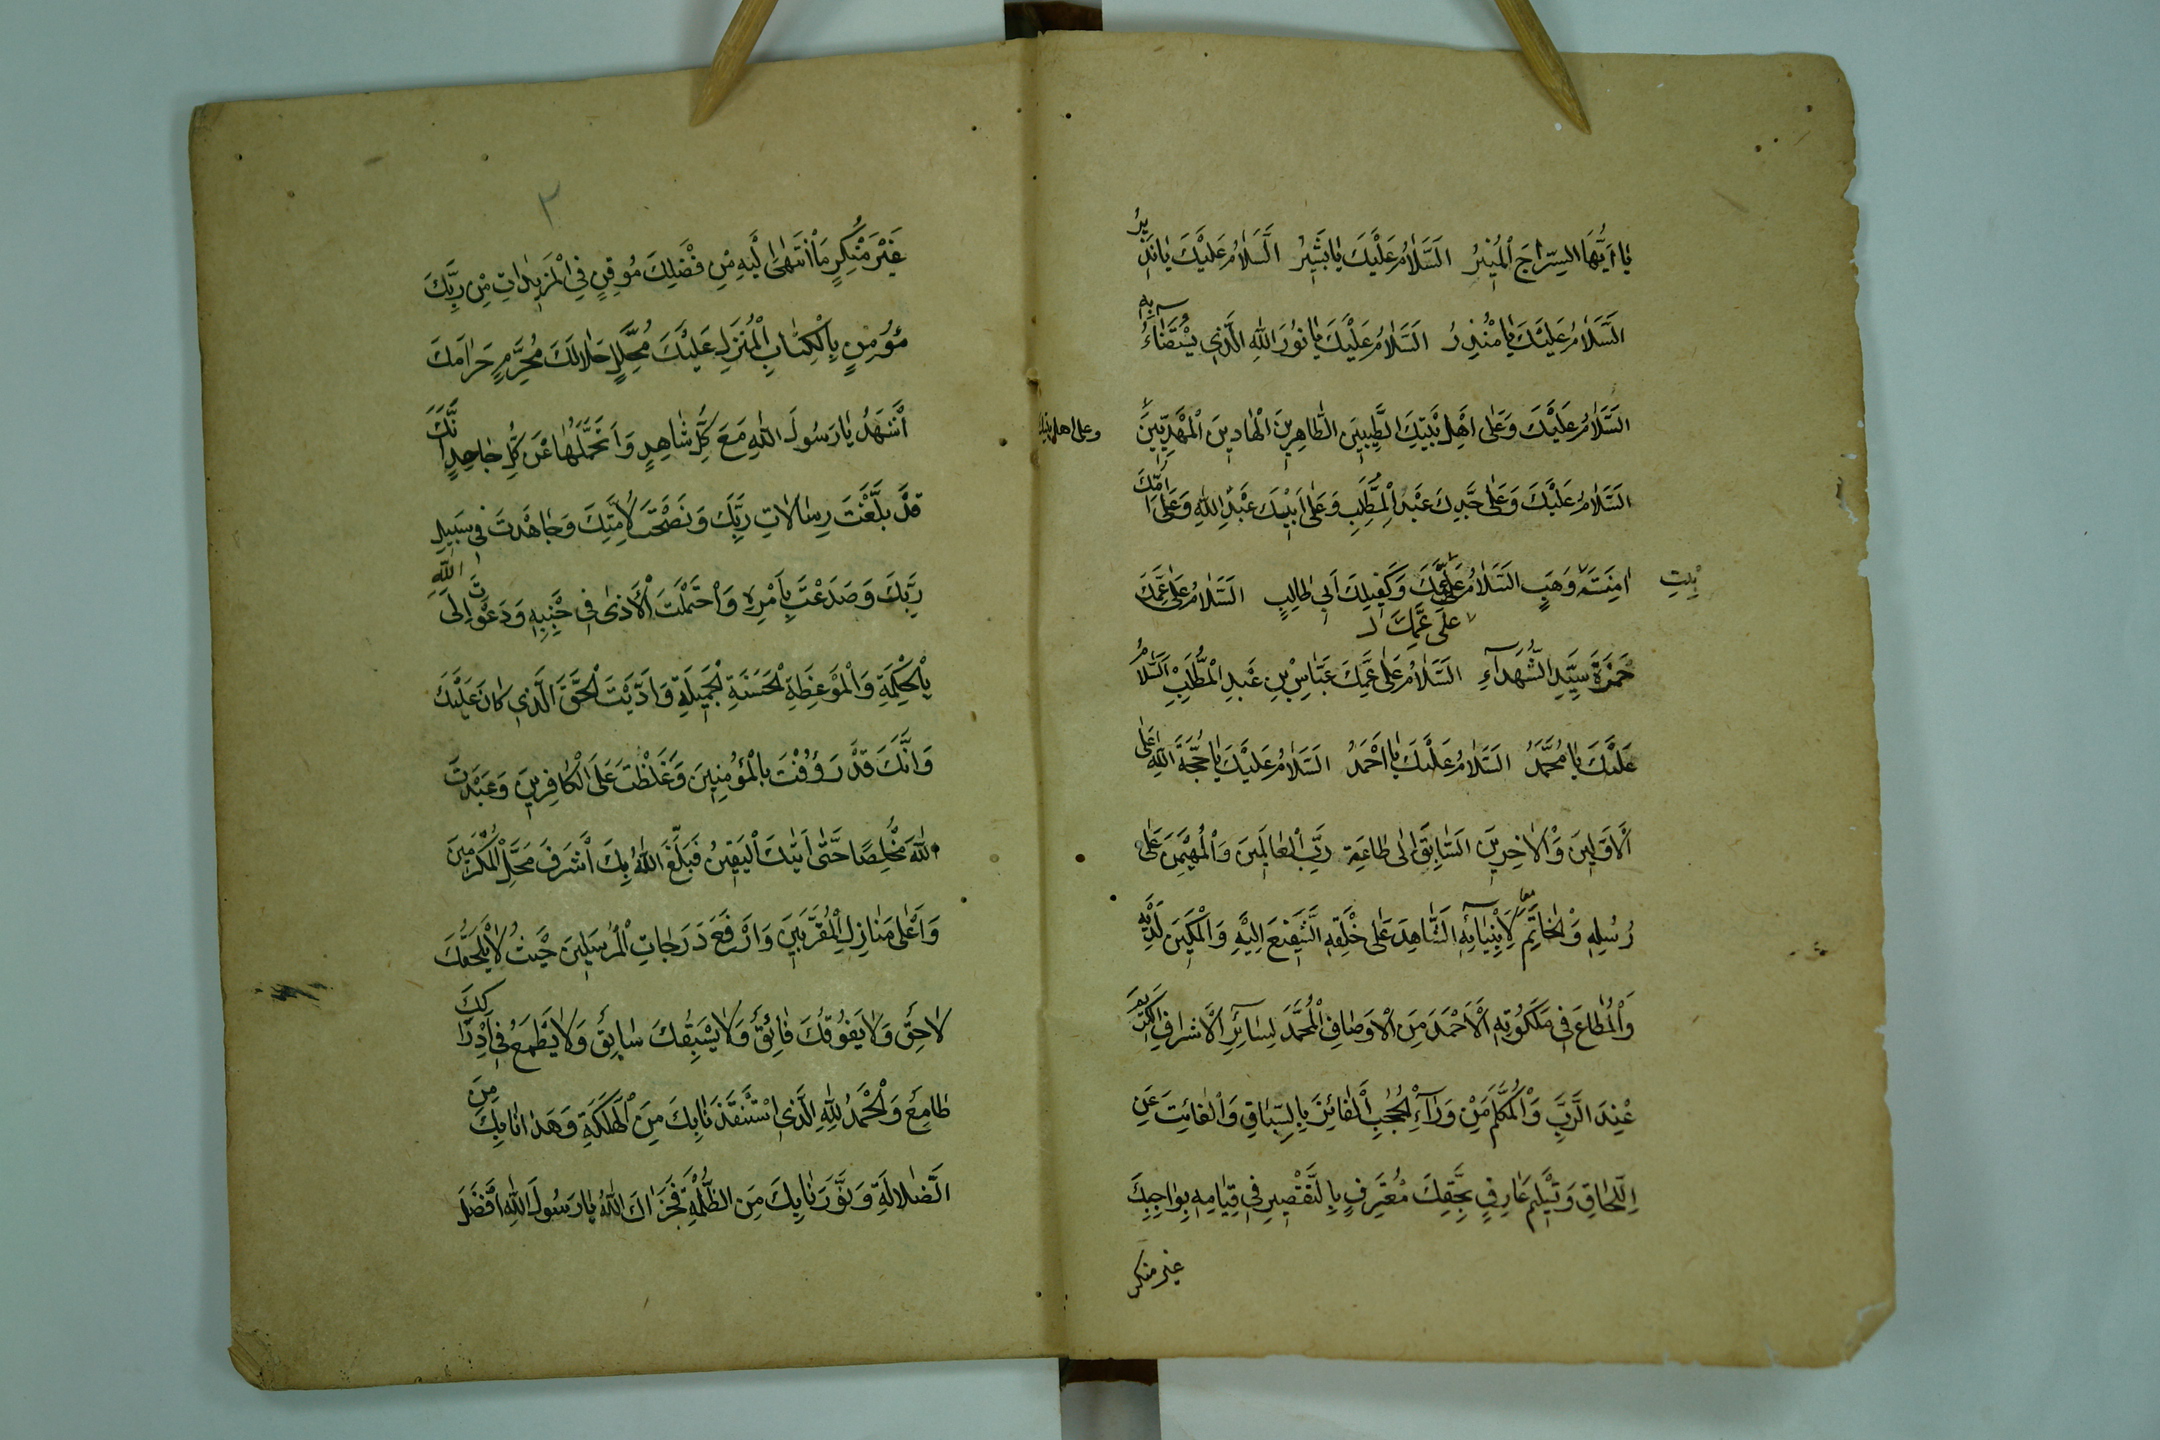 يٰا اَيُّهَا السِّرٰاجَ الْمُنِيْرُ اَلسَّلٰامُ عَلَيْكَ يٰا بَشِيْرُ اَلسَّلٰامُ عَلَيْكَ يٰا نَذِيْرُ
اَلسَّلٰامُ عَلَيْكَ يٰا مُنْذِرُ اَلسَّلٰامُ عَلَيْكَ يٰا نُوْرَ اللّٰهِ الَّذِي يُسْتَضٰاءُ بِهِ
اَلسَّلٰامُ عَلَيْكَ وَعَلٰى اَهْلِ بَيْتِكَ الطَّيِّبِيْنَ الطّٰاهِرِيْنَ الْهٰادِيْنَ الْمَهْدِيِّيْنَ
وعلى اهل بيتك
اَلسَّلٰامُ عَلَيْكَ وَعَلٰى جَدِّكَ عَبْدِ الْمُطَّلِبِ وَعَلٰى اَبِيْكَ عَبْدِ اللّٰهِ وَعَلٰى اُمِّكَ
اٰمِنَتَه وَهَبٍ اَلسَّلٰامُ عَلٰى عَمِّكَ وَكَفِيلِكَ اَبِي طٰالِبٍ اَلسَّلٰامُ عَلٰى عَمِّكَ
بِنْتِ
عَلٰى عَمِّكَ
حَمْزَةَ سَيِّدِ الشُّهَدٰآءِ اَلسَّلٰامُ عَلٰى عَمِّكَ عَبّٰاسِ بْنِ عَبدِ الْمُطَّلِبِ اَلسَّلٰامُ
عَلَيْكَ يٰا مُحَمَّدُ اَلسَّلٰامُ عَلَيْكَ يٰا اَحْمَدُ اَلسَّلٰامُ عَلَيْكَ يٰا حُجَّةَ اللّٰهِ عَلٰى
اَلْاَوَّلِيْنَ وَالْاٰخِرِيْنَ السّٰابِقَ اِلٰى طٰاعَةِ رَبِّ الْعٰالَمِيْنَ وَالْمُهَيْمِنَ عَلٰى
رُسُلِهِ وَالْخٰاتِمَ لِاَنْبِيٰائِهِ الشّٰاهِدَ عَلٰى خَلْقِهِ الشَّفِيْعَ اِلَيْهِ وَالْمَكِيْنَ لَدَيْهِ
وَالْمُطٰاعَ فِي مَلَكُوْتِهِ الْاَحْمَدَ مِنَ الْاَوْصٰافِ الْمُحَمَّدَ لِسٰائِرِ الْاَشْرٰافِ الْكَرِيْمَ
عِنْدَ الرَّبِّ وَالْمُكَلَّمَ مِنْ وَرٰآءِ الْحُجُبِ الْفٰائِزَ بِالسِّبٰاقِ وَالْفٰائِتَ عَنِ
اللِّحٰاقِ وَتَسْلِيْمَ عٰارِفٍ بِحَقِّكَ مُعْتَرِفٍ بِالتَّقْصِيْرِ فِي قِيٰامِهِ بِوٰاجِبِكَ
غير منكر
٢
غَيْرَ مُنْكِرٍ مَا انْتَهٰى اِلَيْهِ مِنْ فَضْلِكَ مُوقِنٍ فِي الْمَزِيْدٰاتِ مِنْ رَبِّكَ
مُؤْمِنٍ بِالْكِتٰابِ الْمُنْزَلِ عَلَيْكَ مُحَلِّلٍ حَلٰالَكَ مُحَرِّمٍ حَرٰامَكَ
اَشْهَدُ يٰا رَسُولَ اللّٰهِ مَعَ كُلِّ شٰاهِدٍ وَاَتَحَمَّلُهٰا عَنْ كُلِّ جٰاحِدٍ اَنَّكَ
قَدْ بَلَّغْتَ رِسٰالٰاتِ رَبِّكَ وَنَصَحْتَ لِاُمَّتِكَ وَجٰاهَدْتَ فِي سَبِيلِ
رَبِّكَ وَصَدَعْتَ بِاَمْرِهِ وَاحْتَمَلْتَ الْاَذٰى فِي جَنْبِهِ وَدَعَوْتَ اِلٰى اللّٰهِ
بِالْحِكْمَةِ وَالْمَوْعِظَةِ الْحَسَنَةِ الْجَمِيلَةِ وَاَدَّيْتَ الْحَقَّ الَّذِي كٰانَ عَلَيْكَ
وَاَنَّكَ قَدْ رَؤُفْتَ بِالْمُؤْمِنِيْنَ وَغَلَظْتَ عَلَى الْكٰافِرِيْنَ وَعَبَدْتَ
اللّٰهَ مُخْلِصًا حَتّٰى اَتٰيكَ الْيَقِيْنُ فَبَلَّغَ اللّٰهُ بِكَ اَشْرَفَ مَحَلِّ الْمُكَرَّمِيْنَ
وَاَعْلٰى مَنٰازِلِ الْمُقَرَّبِيْنَ وَارْفَعَ دَرَجٰاتِ الْمُرْسَلِيْنَ حَيْثُ لٰا يَلْحَقُكَ
لٰاحِقٌ وَلٰا يَفُوْقُكَ فٰائِقٌ وَلٰا يَسْبِقُكَ سٰابِقٌ وَلٰا يَطْمَعُ فِي اِدْرٰاكِكَ
طٰامِعٌ وَالْحَمْدُ لِلّٰهِ الَّذِي اسْتَنْقَذَنٰا بِكَ مِنَ الْهَلَكَةِ وَهَدٰانٰا بِكَ مِنَ
الضَّلٰالَةِ وَنَوَّرَنٰا بِكَ مِنَ الظُّلْمَةِ فَجَزٰاكَ اللّٰهُ يٰا رَسُولَ اللّٰهِ اَفْضَلَ